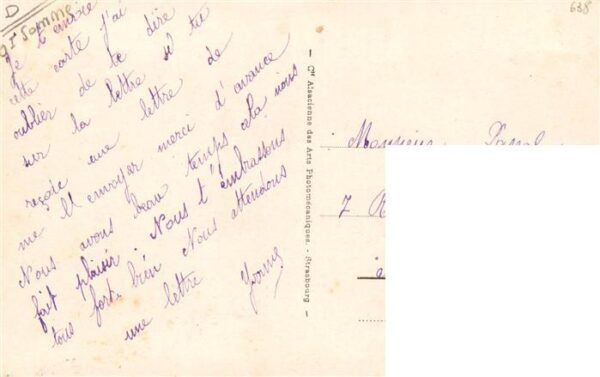 D
91 Somme
638
Je t'envoie
cette carte j'ai
oublier de te dire
sur la lettre si tu
reçoie une lettre de
me l'envoyer merci d'avance
Nous avons beau temps cela nous
fait plaisir. Nous t'embrassons
tous fort bien Nous attendons
une lettre
Yvonne
Cie Alsacienne des Arts Photomécaniques. - Strasbourg -
Monsieur
7 R
à